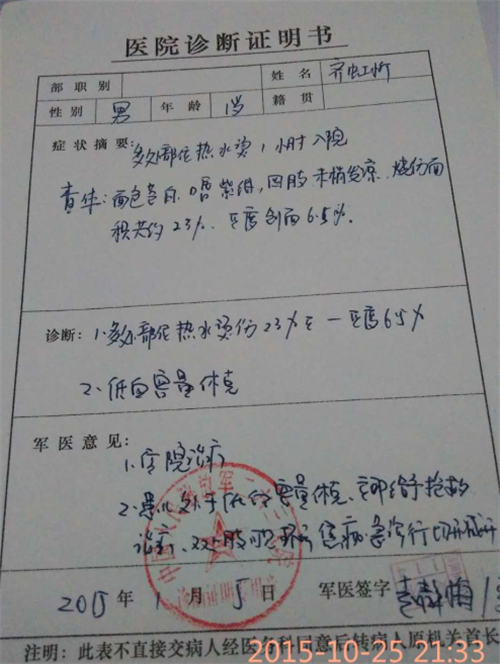 医院诊断证明书
部职别 姓名 齐虹忻
性别 男 年龄 1岁 籍贯
症状摘要: 多处部位热水烫1小时入院
查体: 面色苍白, 口唇紫绀, 四肢末梢发凉, 烧伤面
积共约23%
诊断: 1、多处部位热水烫伤23%
2、低血容量休克
军医意见:
1、住院治疗
2、患儿处于低血容量休克、立即给予抢救
治疗、
2015年 1 月 5 日 军医签字
注明: 此表不直接交病人经医务科同意后转病人原机关首长
2015-10-25 21:33